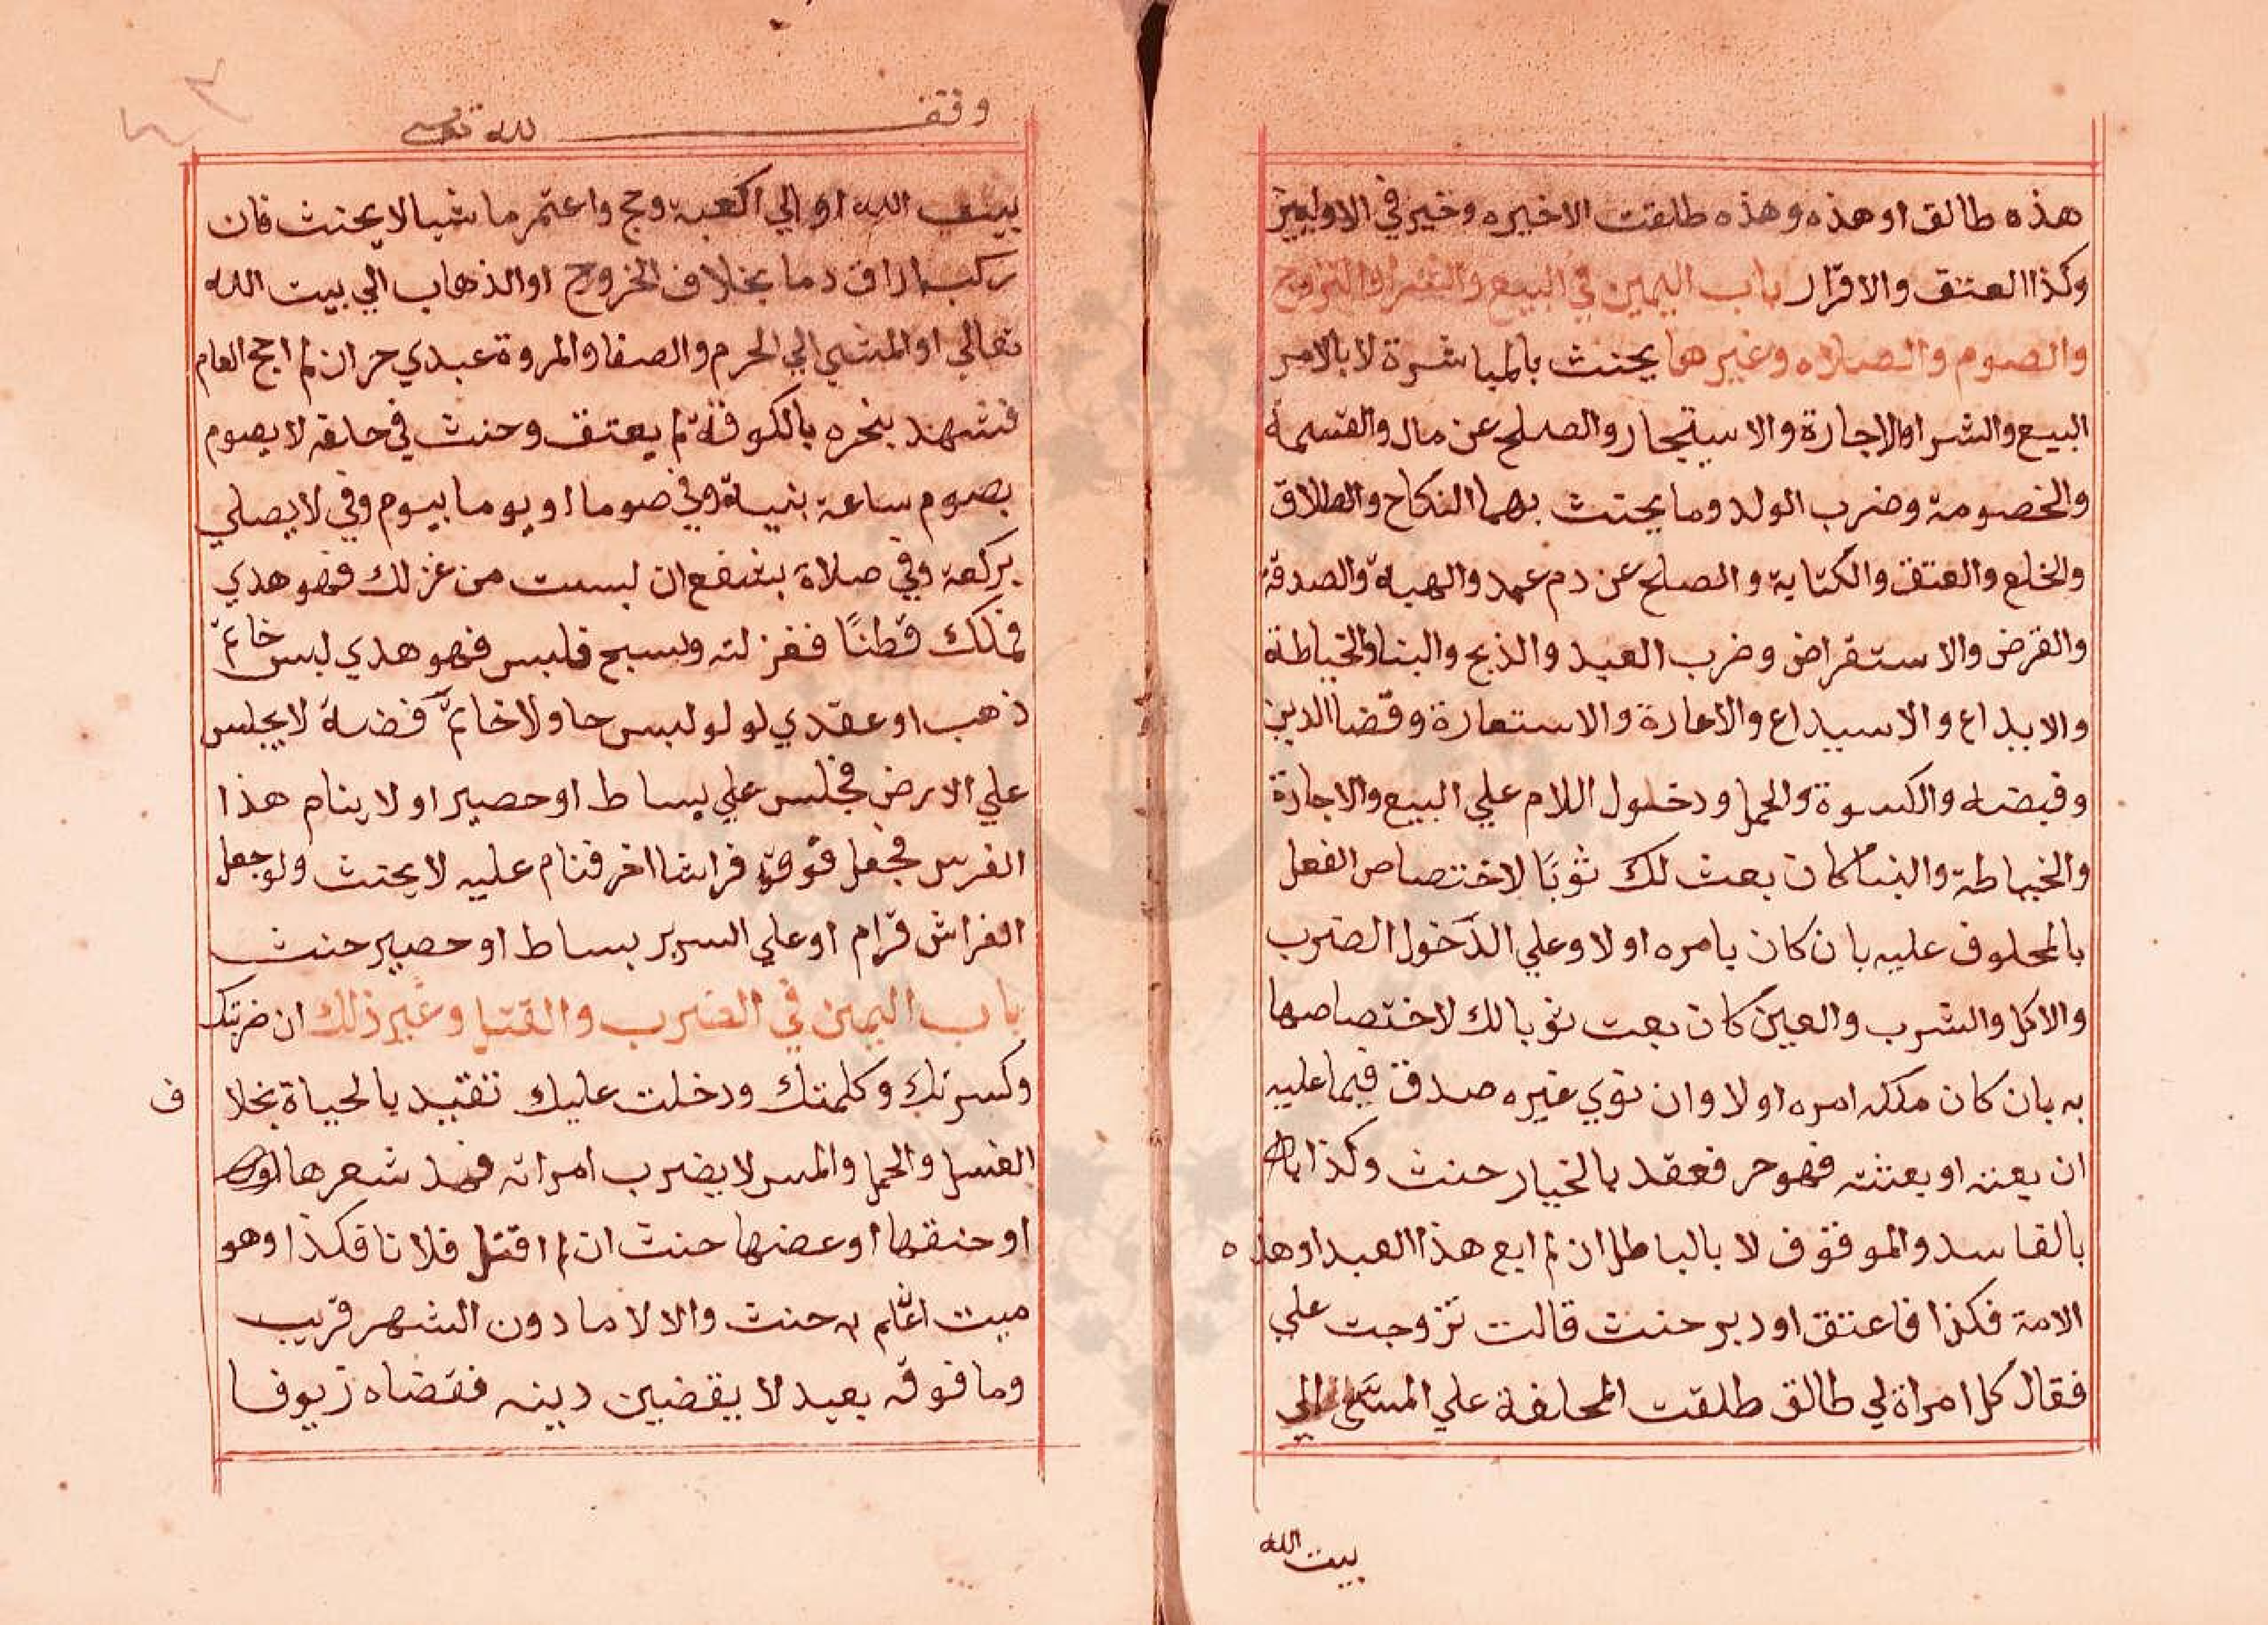 هذه طالق او هذه وهذه طلقت الاخيره وخير في الاوليين
وكذا العتق والاقرار باب اليمين في البيع والشرا والتزوج
والصوم والصلاه وغيرها يحنث بالمباشرة لا بالامر
البيع والشرا والاجارة والاستيجار والصلح عن مال والقسمة
والخصومة وضرب الولد وما يحنث بهما النكاح والطلاق
والخلع والعتق والكتابة والصلح عن دم عمد والهبة والصدقة
والقرض والاستقراض وضرب العبد والذبح والبنا والخياطة
والايداع والاسيداع والاعارة والاستعارة وقضا الدين
وقبضه والكسوة والحمل ودخلول اللام علي البيع والاجارة
والخياطة والبنا كان بعث لك ثوبًا لاختصاص الفعل
بالمحلوف عليه بان كان يامره او لا وعلي الدخول الضرب
والاكل والشرب والعين كان بعت ثوبا لك لاختصاصها
به بان كان ملكه امره او لا وان نوي غيره صدق فيما عليه
ان بعته او بعتته فهو حر فعقد بالخيار حنث وكذا
بالفاسد والموقوف لا بالباطل ان لم ابع هذا العبد او هذه
الامة فكذا فاعتق او دبر حنث قالت تزوجت علي
فقال كل امراة لي طالق طلقت المحلفة علي المشي الي
بيت الله
وقف لله تعالى
بيت الله او الي الكعبة وحج واعتمر ماشيا لا يحنث فان
ركب اراق دما بخلاف الخروج او الذهاب الي بيت الله
تعالي او المشي الي الحرم والصفا والمروة عبدي حر ان لم احج العام
فشهد بنحره بالكوفة لم يعتق وحنث في حلفه لا يصوم
بصوم ساعة بنية وفي صوما او يوما بيوم وفي لا يصلي
بركعة وفي صلاة بشفع ان لبست من غزلك فهو هدي
فملك قطنًا فغزلته ونسج فلبس فهو هدي لبس خاتم
ذهب او عقدي لولو لبس حا ولا خاتم فضة لا يجلس
علي الارض فجلس علي بساط او حصير او لا ينام هذا
الفرس فجعل فوقه فراشا اخر فنام عليه لا يحنث ولو جعل
الفراش قرام او علي السرير بساط او حصير حنث
باب اليمين في الضرب والقتل وغير ذلك ان ضربتك
وكسرتك وكلمتك ودخلت عليك تقيد بالحياة بخلا
ف
الغسل والحمل والمس لا يضرب امراته فمد شعرها
او خنقها او عضها حنث ان لم اقتل فلانا فكذا وهو
ميت اعلم به حنث والا لا ما دون الشهر قريب
وما فوقه بعيد لا يقضين دينه فقضاه زيوفا